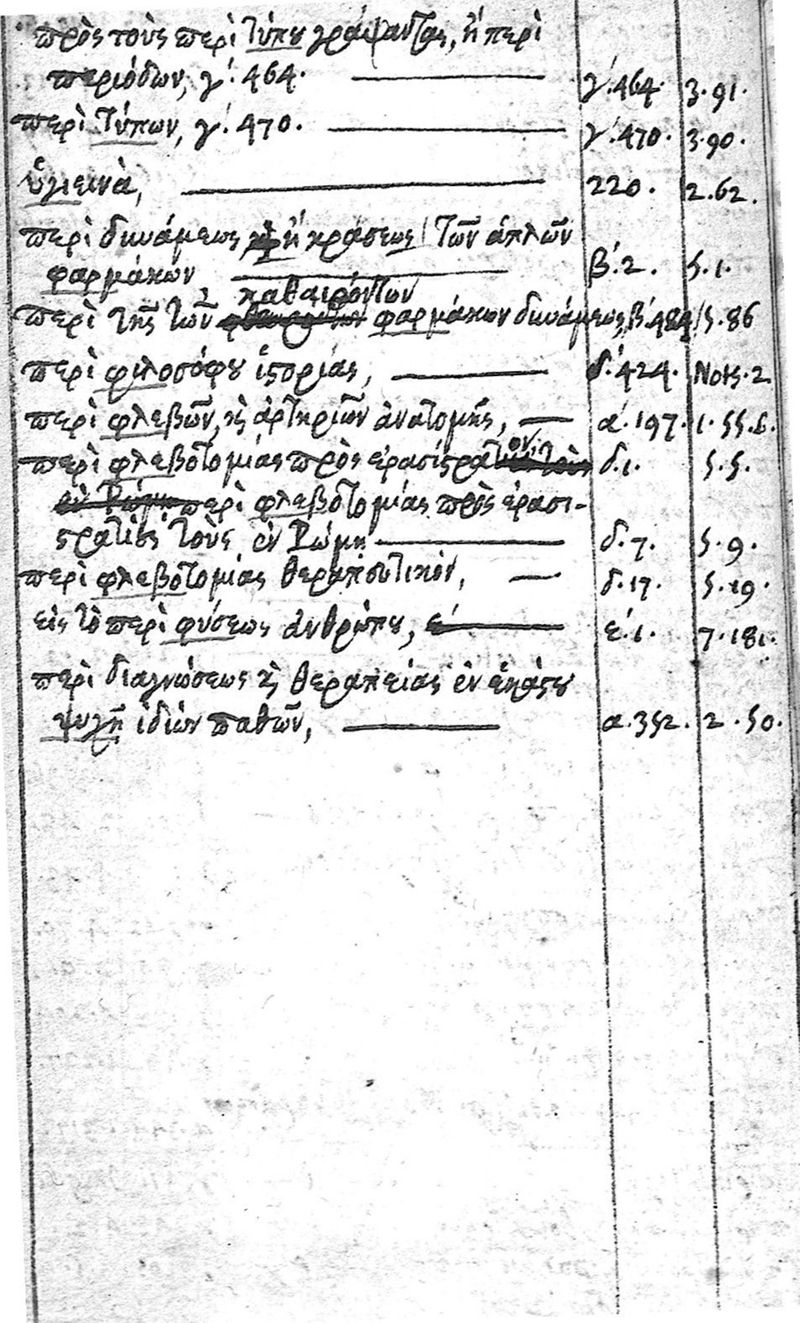 πρὸς τοὺς περὶ τύπȣ γράψαντας, ἢ περὶ
περιόδων, γ´. 464. γ´. 464. 3. 91.
περὶ τύπων, γ´. 470. γ´. 470. 3. 90.
ὑγιεινὰ, 220. 2. 62.
περὶ δυνάμεως ἢ κράσεως τῶν ἁπλῶν
φαρμάκων β´. 2. 5. 1.
καθαιρόντων
περὶ τῆς τῶν φαρμάκων δυνάμεως, β´. 484 5. 86
περὶ φιλοσόφȣ ἱστορίας, δ´. 424. Noth. 2
περὶ φλεβῶν, ϗ ἀρτηριῶν ἀνατομῆς, α´. 197. 1.
περὶ φλεβοτομίας πρὸς ἐρασίστρατον δ. 1. 5. 5.
περὶ φλεβοτομίας πρὸς ἐρασι-
στρατείȣς τοὺς ἐν Ῥώμῃ δ. 7. 5. 9.
περὶ φλεβοτομίας θεραπευτικὸν, δ. 17. 5. 19.
εἰς τὸ περὶ φύσεως ἀνθρώπȣ, ε´. 1. 7. 181.
περὶ διαγνώσεως ϗ θεραπείας ἐν ἑκάστȣ
ψυχῇ ἰδίων παθῶν, α. 352. 2. 50.